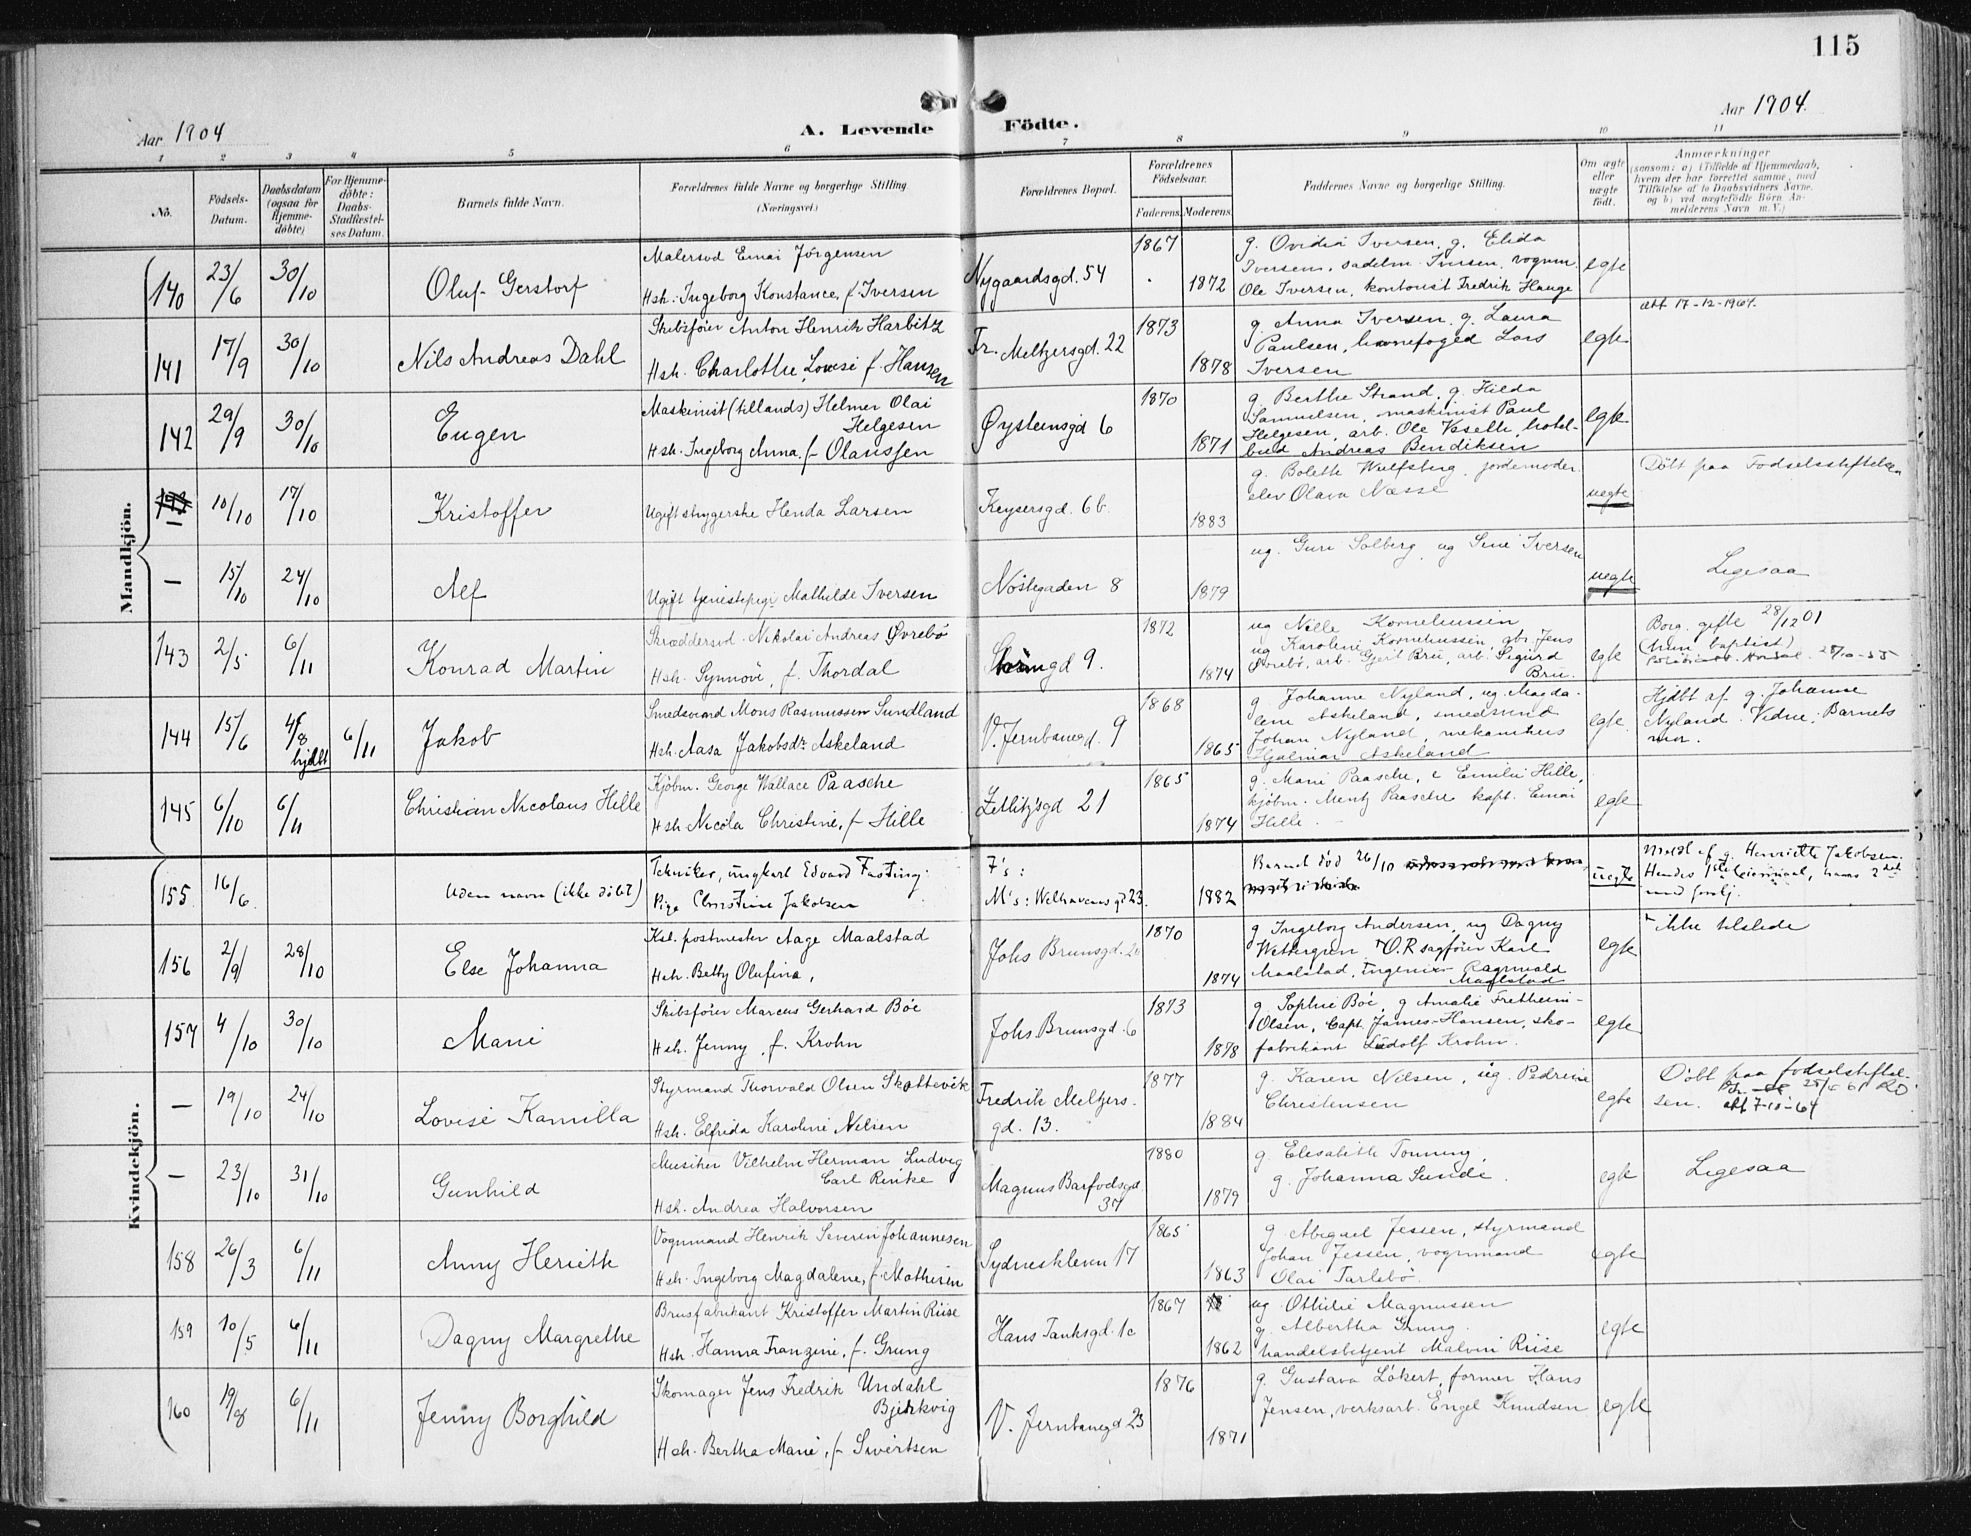 115
Aar 1904
A. Levende Födte.
Aar 1904.
1 2 3 4 5 6 7 8 9 10 11
No.
Födsels-Datum.
Daabsdatum (ogsaa for Hjemme-döbte)
For Hjemme-döbte: Daabs-Stadfæstel-ses Datum.
Barnets fulde Navn.
Forældrenes fulde Navne og borgerlige Stilling
(Næringsvei.)
Forældrenes Bopæl.
Forældrenes Födselsaar.
Faderens. Moderens.
Faddernes Navne og borgerlige Stilling.
Om ægte eller uægte født.
Anmærkninger
(saasom: a) i Tilfælde af Hjemmedaab,
hvem der har forrettet samme, med
Tilföielse af to Daabsvidners Navne,
og b) ved uægtefödte Börn An-
melderens Navn m. V.)
Mandkjön.
140 23/6 30/10 Oluf Gerstorf
Malersvd Einai Jörgensen
Hsh. Ingeborg Konstance, f. Iversen
Nygaardsgd. 54
1867
1872
g. Ovidia Iversen, g. Elida
Iversen, sadelm. Iversen, vognm.
Ole Iversen, kontorist Fredrik Hauge
egte
141 17/9 30/10 Nils Andreas Dahl
Skibsförer Anton Henrik Harbitz
Hsh. Charlotte Lovise f. Hansen
Fr. Meltzersgd. 22
1873
1878
g. Anna Iversen, g. Laura
Paulsen, havnefoged Lars
Iversen
egte
att 17-12-1964.
142 29/9 30/10 Eugen
Maskinist (tillands) Helmer Olai
Helgesen
Hsh. Ingeborg Anna, f. Olaussen
Øysteinsgd 6
1870
1871
g. Berthe Strand, g. Hilda
Samuelsen, maskinist Paul
Helgesen, arb. Ole Veselle, hotel-
bud Andreas Bendiksen
egte
— 10/10 17/10 Kristoffer
Ugift strygerske Henda Larsen
Keysersgd. 6b.
1883
g. Bolette Wulfsberg, jordemoder
elev Olava Næsse
uegte
Döbt paa Fødselsstiftelsen
— 15/10 24/10 Alf
Ugift tjenestepige Mathilde Iversen
Nöstegaden 8
1879
ug. Guri Solberg, ug Sine Iversen
uegte
Ligesaa
143 2/5 6/11 Konrad Martin
Skræddersvd. Nikolai Andreas Øvrebö
Hsh. Synnöve, f. Thordal
9.
1872
1874
ug Nille Korneliussen
ug Karoline Korneliussen, gbr. Jens
Øvrebö, arb. Gjert Bru, arb. Sigurd
Bru.
egte
Borg. gifte 28/12 01
(hun baptist)
144 15/6 4/8 hjdbt 6/11 Jakob
Smedsvend Mons Rasmussen Sundland
Hsh. Aasa Jakobsdr. Askeland
V. Jernbanegd. 9
1868
1865
g. Johanne Nyland, ug. Magda-
lene Askeland, smedsvend
Johan Nyland, mekanikus
Hjalmar Askeland
egte.
Hjdbt af g. Johanne
Nyland. Vidne: Barnets
mor.
145 6/10 6/11 Christian Nicolaus Hille
Kjöbm. George Wallace Paasche
Hsh. Nicola Christine, f. Hille
Zetlitzsgd 21
1865
1874
g. Marie Paasche, e Emilie Hille,
kjöbm. Mentz Paasche kapt. Einar
Hille.
egte
Kvindekjön.
155 16/6 Uden navn (ikke döbt)
Tekniker, ungkarl Edvard Fasting.
Pige Christine Jakobsen
F's:
M's: Welhavensgd 23.
1882
Barnet död 26/10
uegte
Meldt af g. Henriette Jakobsen.
Hendes 1ste leiermaal, hans 2det
med forskj.
156 2/9 28/10 Else Johanna
Kst. postmester Aage Maalstad
Hsh. Betty Olufina,
Johs Brunsgd.
1870
1874
g Ingeborg Andersen, ug Dagny
Wettergren O.R sagförer Karl
Maalstad, ingeniør Ragnvald
Maalstad
egte
ikke tilstede
157 4/10 30/10 Marie
Skibsförer Marcus Gerhard Böe
Hsh. Jenny, f. Krohn
Johs Brunsgd. 6
1873
1878
g. Sophie Böe, g Amalie Fretheim-
Olsen, Capt. James-Hansen, sko-
fabrikant Ludolf Krohn.
egte
— 19/10 24/10 Lovise Kamilla
Styrmand Thorvald Olsen Skottevik
Hsh. Elfrida Karoline Nilsen
Fredrik Meltzers-
gd. 13.
1877
1884
g. Karen Nilsen, ug. Pedrine
Christensen
egte
Döbt paa födselsstiftel-
sen. att 7-10-64
— 23/10 31/10 Gunhild
Musiker Vilhelm Herman Ludvig
Carl Rinke
Hsh. Andrea Halvorsen
Magnus Barfodsgd.
37
1880
1879
g. Elisabeth Tonning,
g. Johanna Sunde.
egte
Ligesaa
158 26/3 6/11 Anny Heriette
Vognmand Henrik Severin Johannesen
Hsh. Ingeborg Magdalene, f. Mathisen
Sydneskleven 17
1865
1863
g. Abigael Jessen, styrmand
Johan Jessen, vognmand
Olai Tarlebö
egte
159 10/5 6/11 Dagny Margrethe
Brusfabrikant Kristoffer Martin Riise
Hsh. Hanna Franzine, f. Grung
Hans Tanksgd. 1c
1867
1862
ug Othilie Magnussen
g. Albertha Grung.
handelsbetjent Malvin Riise
egte
160 19/8 6/11 Jenny Borghild
Skomager Jens Fredrik Undahl
Bjerkvig
Hsh. Bertha Marie, f. Sivertsen
V. Jernbanegd 23
1876
1871
g. Gustava Lökert, former Hans
Jensen, verksarb. Engel Knudsen
egte